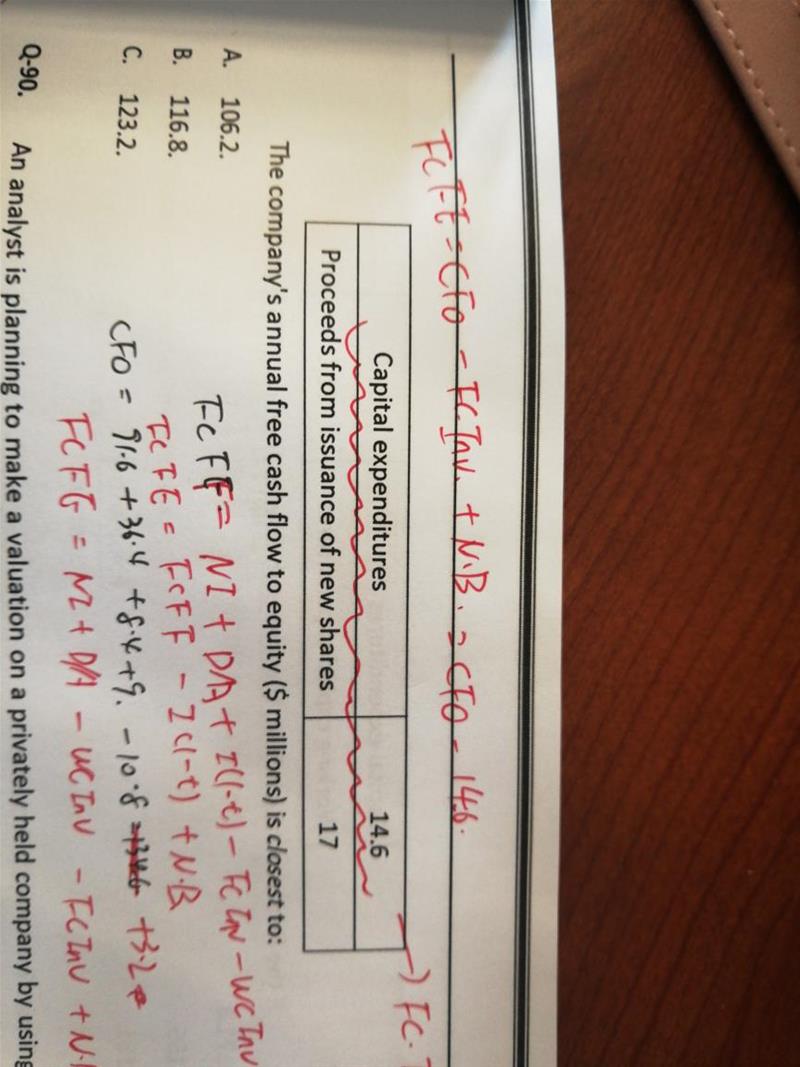 FCFE = CFO - FCInv. + N.B. = CFO - 14.6.
Capital expenditures 14.6
FC.
Proceeds from issuance of new shares 17
The company's annual free cash flow to equity ($ millions) is closest to:
A. 106.2.
FCFF = NI + D/A + I(1-t) - FCInv - WCInv
B. 116.8.
FCFE = FCFF - I(1-t) + N.B
C. 123.2.
CFO = 91.6 + 36.4 + 8.4 + 9. - 10.8 + 3.2
FCFE = NI + D/A - WCInv - FCInv + N.
Q-90. An analyst is planning to make a valuation on a privately held company by using